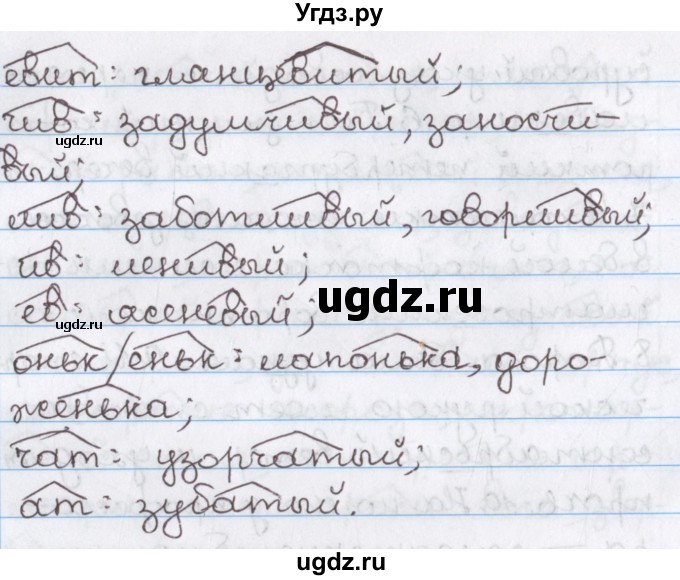 Угдз.ру
евит: глянцевитый;
чив: задумчивый, заносчи-
ugdz.ru
вый;
лив: заботливый, говорливый;
ив: ленивый;
ugdz.ru
ев: ясеневый;
ugdz.ru
оньк/еньк: лапонька, доро-
женька;
чат: узорчатый;
ат: зубатый.